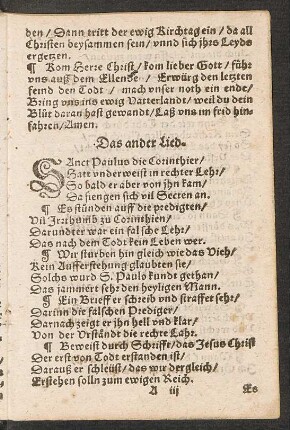 den / Dann tritt der ewig Kirchtag ein / da all
Christen beysammen sein / vnnd sich jhrs Leyds
ergetzen.
¶ Kom Herre Christ / kom lieber Gott / führ
vns auß dem Ellende / Erwürg den letzten
feind den Todt / mach vnser noth ein ende /
Bring vns ins ewig Vatterlandt / weil du dein
Blůt daran hast gewandt / Laß vns im frid hin-
fahren / Amen.
Das ander Lied.
SAnct Paulus die Corinthier /
Hatt vnderweist in rechter Lehr /
So bald er aber von jhn kam /
Da fiengen sich vil Secten an.
¶ Es stůnden auff die predigten /
Vil Jrrthumb zu Corinthien /
Darundter war ein falsche Lehr /
Das nach dem Todt kein Leben wer.
¶ Wir sturben hin gleich wie das Vieh /
Kein Aufferstehung glaubten sie /
Solchs wurd S. Paulo kundt gethan /
Das jammert sehr den heyligen Mann.
¶ Ein Brieff er schreib vnd straffet sehr /
Darinn die falschen Prediger /
Darnach zeigt er jhn hell vnd klar /
Von der Vrständt die rechte Lahr.
¶ Beweist durch Schrifft / das Jesus Christ
Der erst von Todt erstanden ist /
Darauß er schleüst / das wir dergleich /
Erstehen solln zum ewigen Reich.
A iij Es